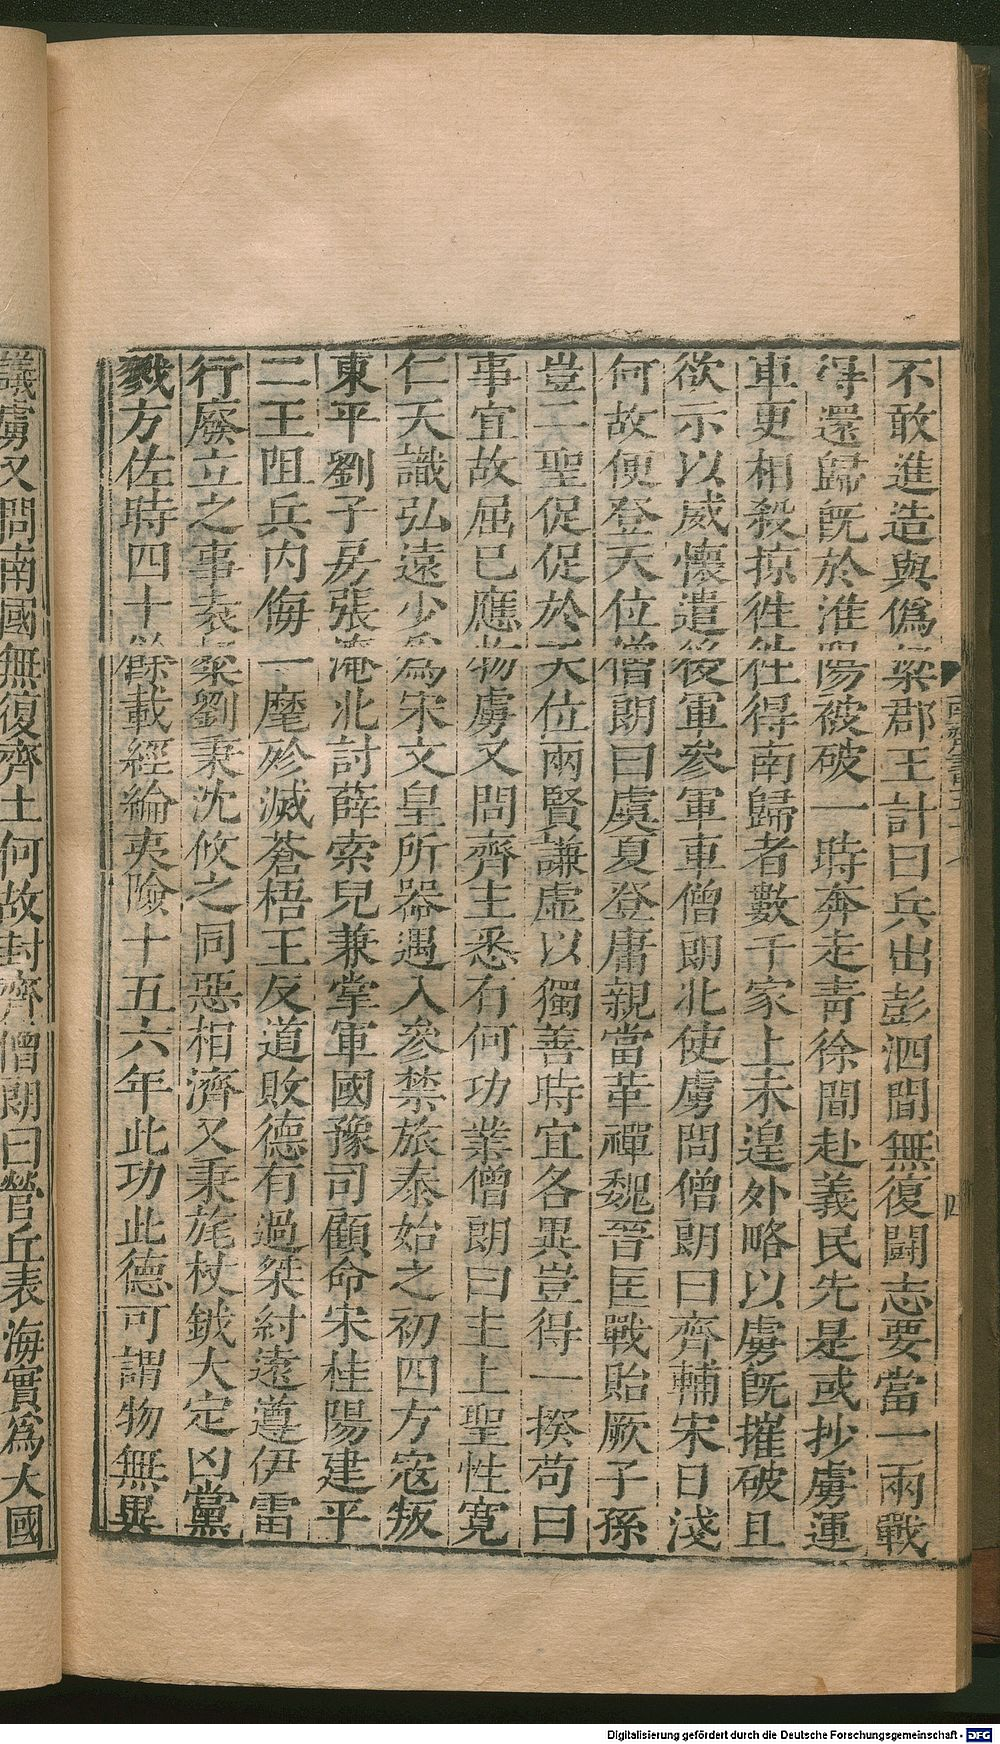 不敢進造與僞梁郡王計曰兵出彭泗間無復鬪志要當一兩戰
得還歸旣於淮陽被破一時奔走靑徐間赴義民先是或抄虜運
車更相殺掠徃徃得南歸者數千家上未遑外略以虜旣摧破且
欲示以威懷遣後軍參軍車僧朗北使虜問僧朗曰齊輔宋日淺
何故便登天位僧朗曰虞夏登庸親當革禪魏晉匡戰貽厥子孫
豈二聖促促於天位兩賢謙虛以獨善時宜各異豈得一揆苟曰
事宜故屈已應物虜又問齊主悉有何功業僧朗曰主上聖性寬
仁天識弘遠少爲宋文皇所器遇入參禁旅泰始之初四方寇叛
東平劉子房張淹北討薛索兒兼掌軍國豫司顧命宋桂陽建平
二王阻兵內侮一麾殄滅蒼梧王反道敗德有過桀紂遠遵伊霍
行廢立之事袁粲劉秉沈攸之同惡相濟又秉旄杖鉞大定凶黨
戮力佐時四十餘載經綸夷險十五六年此功此德可謂物無異
議虜又問南國無復齊土何故封齊僧朗曰營丘表海實爲大國
南齊書五十七
四
Digitalisierung gefördert durch die Deutsche Forschungsgemeinschaft - DFG